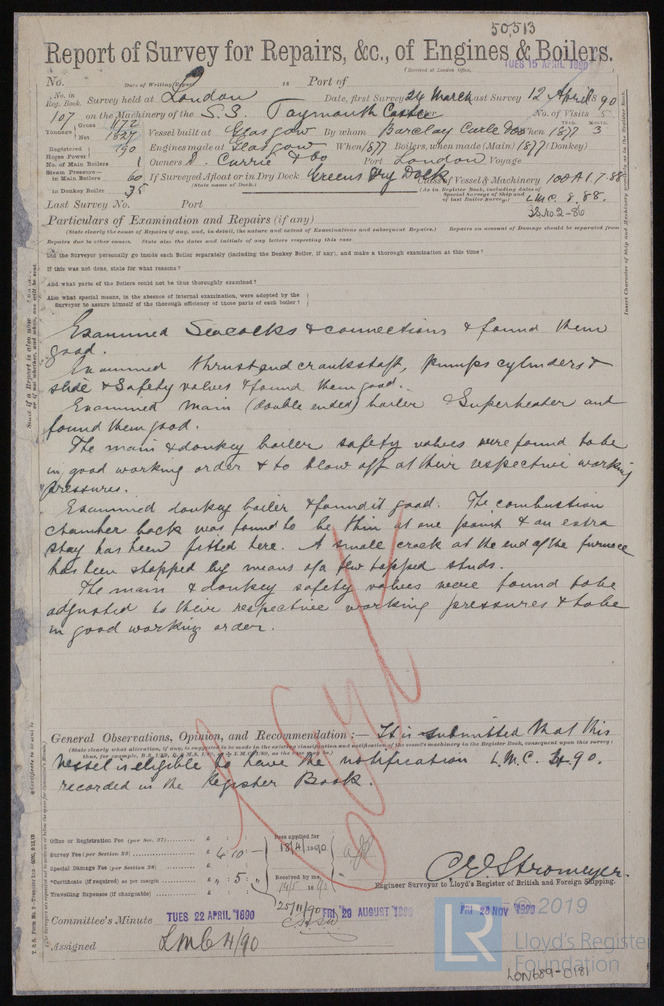 50,513
Report of Survey for Repairs, &c., of Engines & Boilers.
(Received at London Office, TUES 15 APRIL 1890
No. Date of Writing Report 18 Port of
No. in Reg. Book. Survey held at London Date, first Survey 24 March Last Survey 12 April 1890
107 on the Machinery of the S.S. Taymouth Castle No. of Visits 5
Tonnage Gross 1172 Net 1827 Vessel built at Glasgow By whom Barclay Curle & Co When 1877 3
Registered Horse Power 190 Engines made at Glasgow When 1877 Boilers, when made (Main) 1877 (Donkey)
No. of Main Boilers 1 Owners D. Currie & Co Port London Voyage
Steam Pressure in Main Boilers 60 If Surveyed Afloat or in Dry Dock Greens Dry Dock Class of Vessel & Machinery 100A1.7.88
(State name of Dock.)
in Donkey Boiler 35 L.M.C. 8.88.
Last Survey No. Port
Particulars of Examination and Repairs (if any)
(State clearly the cause of Repairs if any, and, in detail, the nature and extent of Examinations and subsequent Repairs.) Repairs on account of Damage should be separated from
Repairs due to other causes. State also the dates and initials of any letters respecting this case
Did the Surveyor personally go inside each Boiler separately (including the Donkey Boiler, if any), and make a thorough examination at this time?
If this was not done, state for what reasons?
And what parts of the Boilers could not be thus thoroughly examined?
Also what special means, in the absence of internal examination, were adopted by the
Surveyor to assure himself of the thorough efficiency of those parts of each boiler?
Examined Seacocks & connections & found them
good.
Examined thrust and crankshaft, pumps cylinders &
slide & Safety valves & found them good.
Examined main (double ended) boiler & Superheater and
found them good.
The main & donkey boiler safety valves were found to be
in good working order & to blow off at their respective working
pressures.
Examined donkey boiler & found it good. The combustion
chamber back was found to be thin at one point & an extra
stay has been fitted here. A small crack at the end of the furnace
has been stopped by means of a few tapped studs.
The main & donkey safety valves were found to be
adjusted to their respective working pressures & to be
in good working order.
General Observations, Opinion, and Recommendation:— It is submitted that this
vessel is eligible to have the notification L.M.C. 4.90.
recorded in the Register Book.
Office or Registration Fee (per Sec. 27) £ : :
Survey Fee (per Section 28) £ 4 : 10 : –
Special Damage Fee (per Section 28) £ : :
*Certificate (if required) as per margin £ „ : 5 : –
Travelling Expenses (if chargeable) £ : :
Fees applied for
18/4/1890
Received by me
25/11/90
C. E. Stromeyer.
Engineer Surveyor to Lloyd's Register of British and Foreign Shipping.
Committee's Minute TUES 22 APRIL 1890 FRI 29 AUGUST 1890 FRI 28 NOV 1890
Assigned LMC 4/90
© 2019
LR
Lloyd's Register
Foundation
LON689-0181